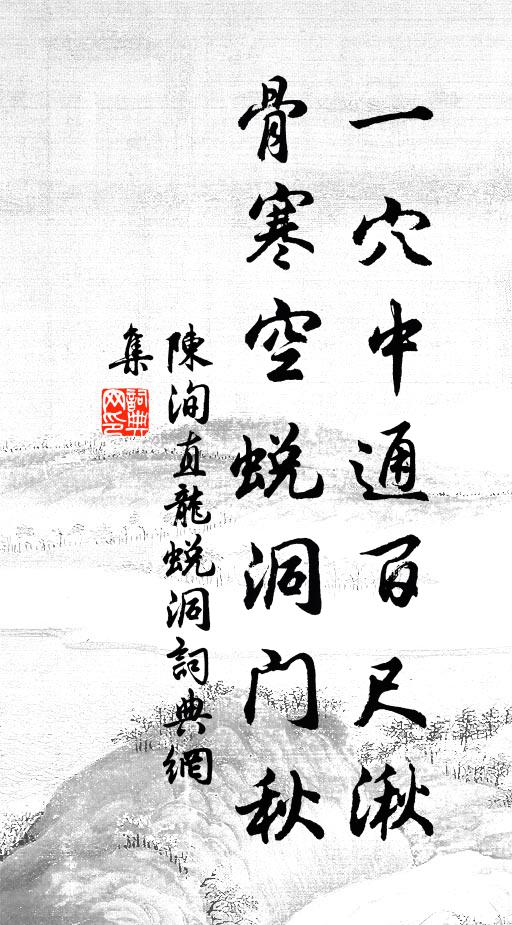 一穴中通百尺湫
骨寒空蜕洞门秋
陳洵直龍蜕洞詞典網
集
詞典網印